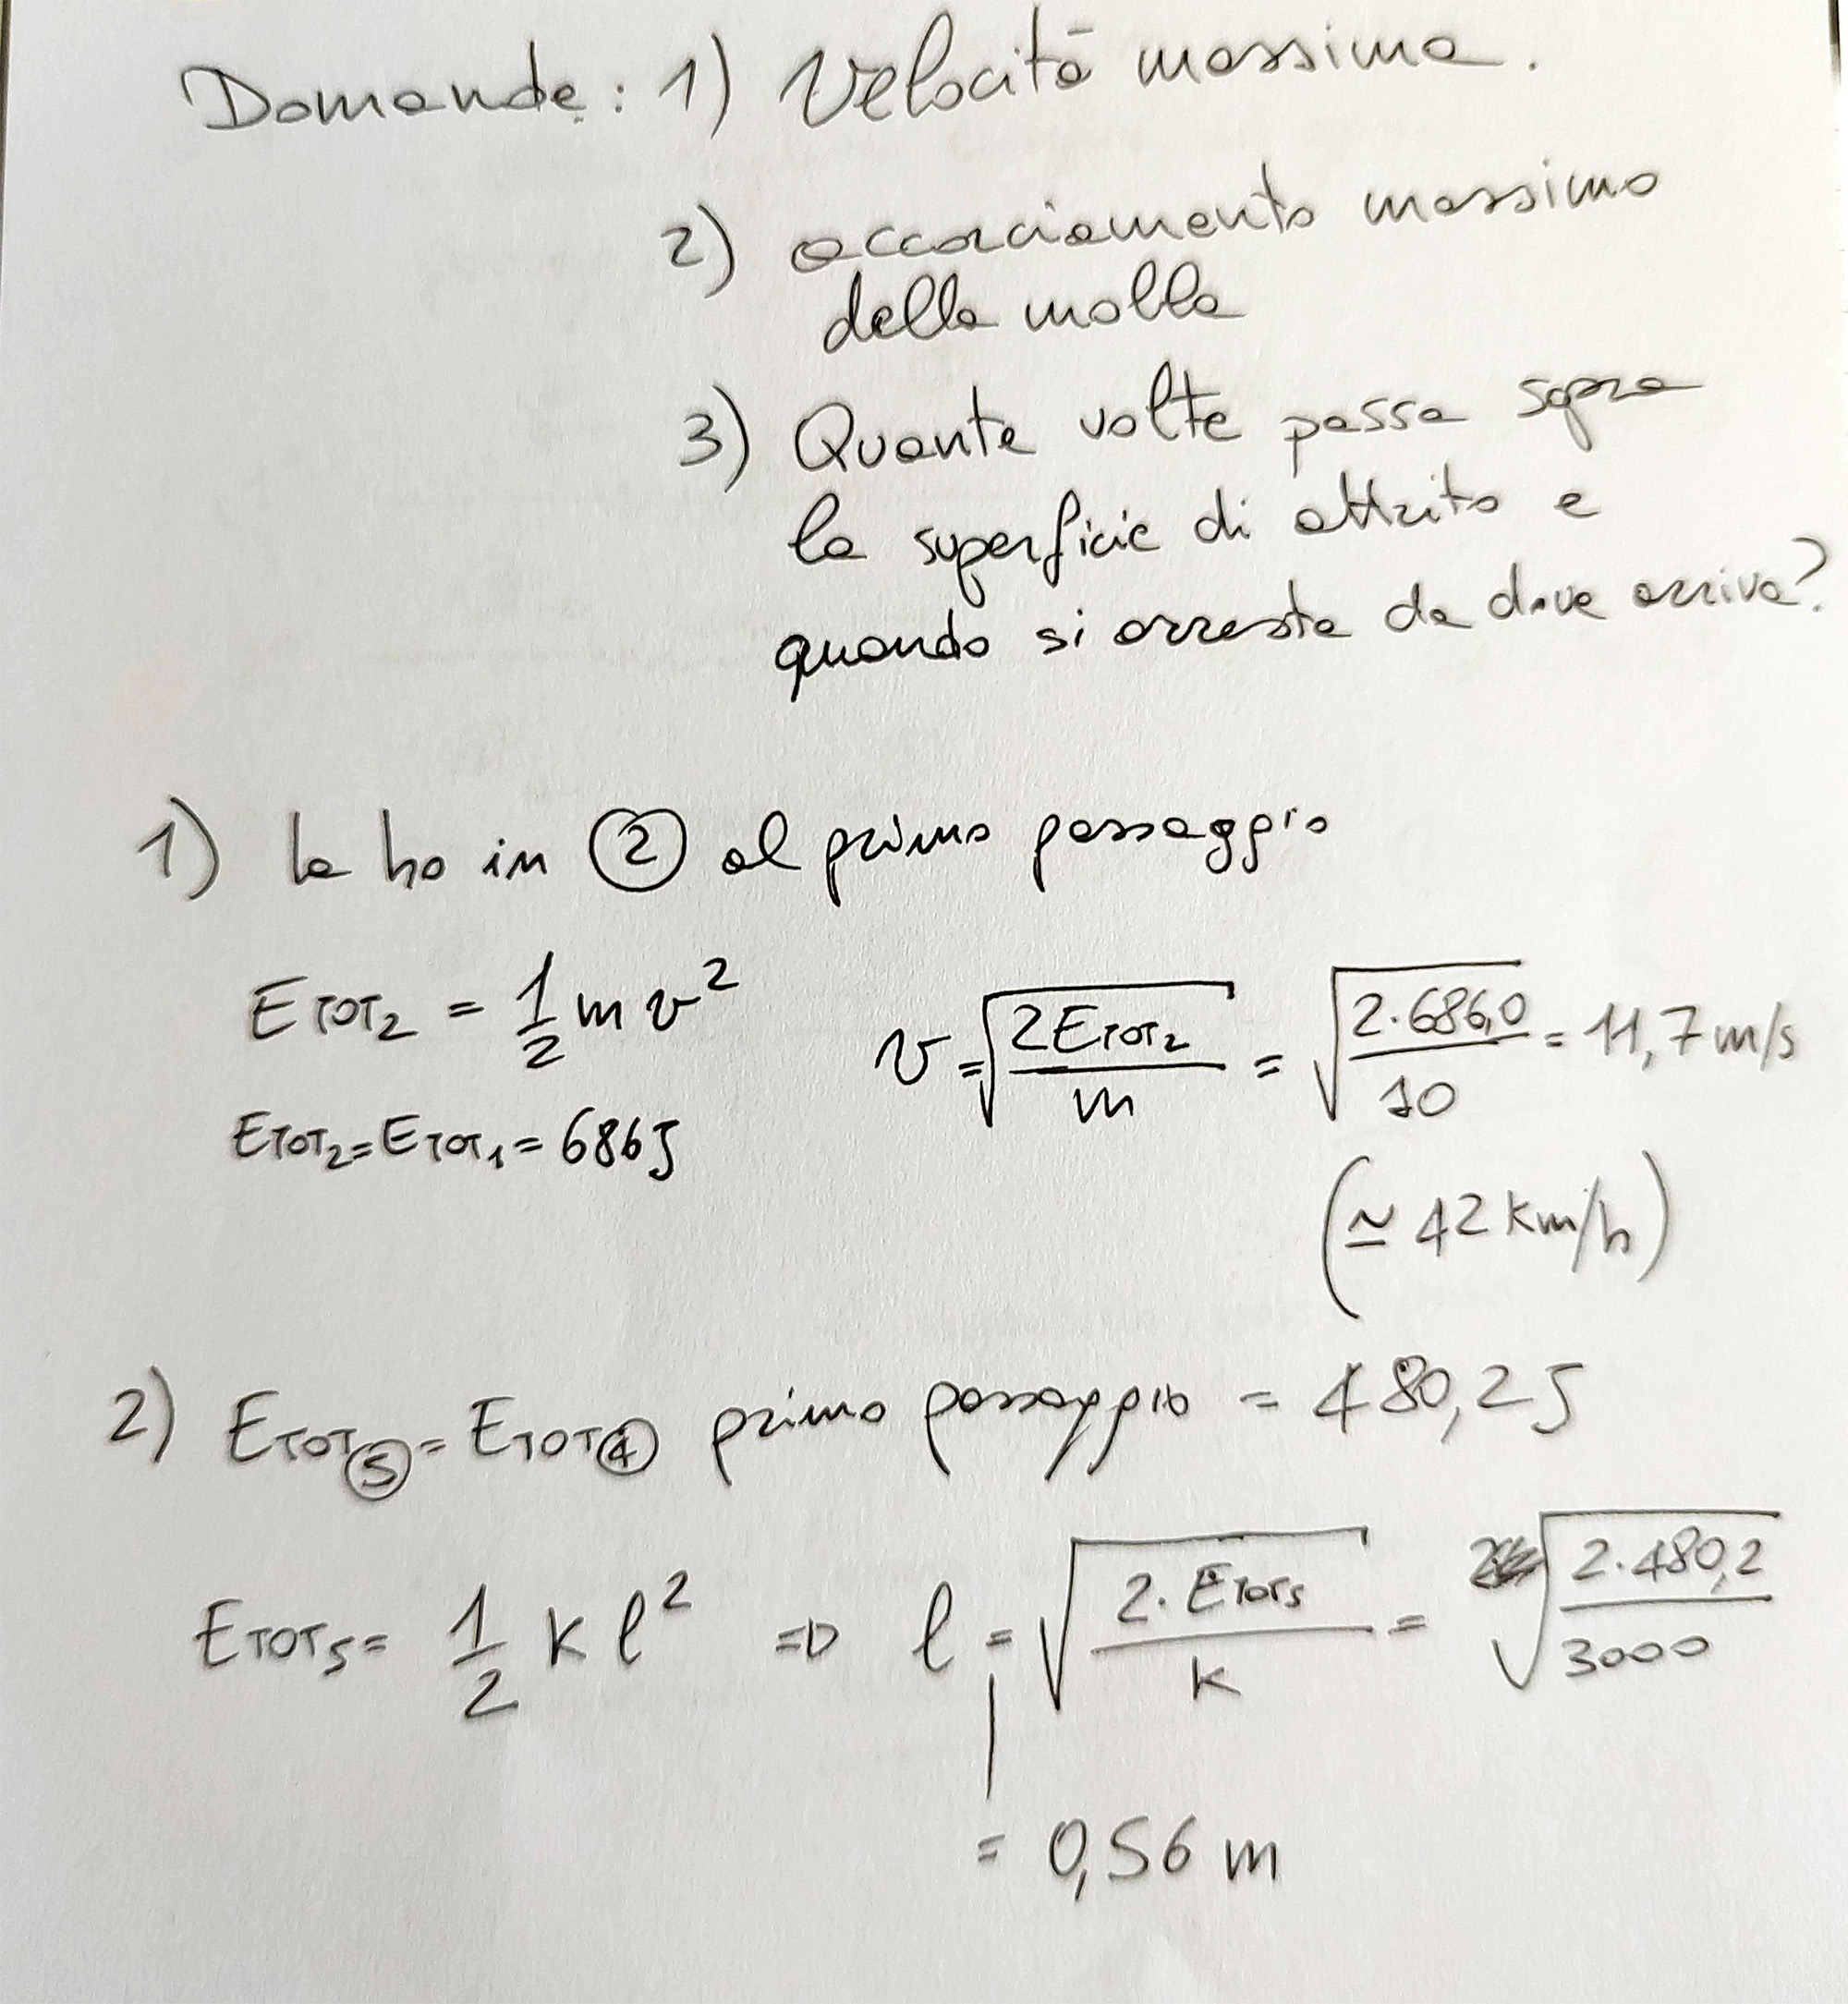 Domande: 1) Velocità massima.
2) accorciamento massimo
della molla
3) Quante volte passa sopra
la superficie di attrito e
quando si arresta da dove arriva?
1) la ho in ② al primo passaggio
ETOT₂ = 1/2 m v² v = √(2ETOT₂/m) = √(2·686,0/10) = 11,7 m/s
ETOT₂ = ETOT₁ = 686 J
(≃ 42 km/h)
2) ETOT⑤ = ETOT④ primo passaggio = 480,2 J
ETOT₅ = 1/2 k l² => l = √(2·ETOT₅/k) = √(2·480,2/3000)
= 0,56 m